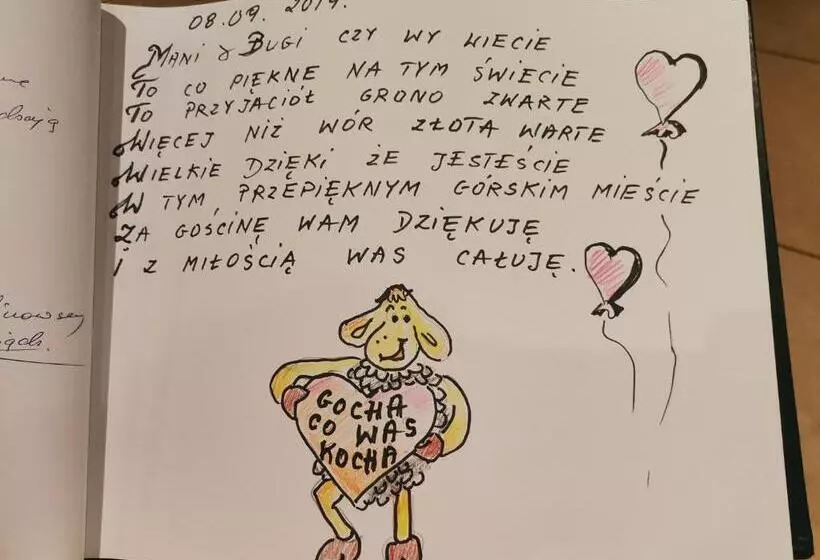 08.09. 2019.
MANI & BUGI CZY WY WIECIE
TO CO PIĘKNE NA TYM ŚWIECIE
TO PRZYJACIÓŁ GRONO ZWARTE
WIĘCEJ NIŻ WÓR ZŁOTA WARTE
WIELKIE DZIĘKI ŻE JESTEŚCIE
W TYM PRZEPIĘKNYM GÓRSKIM MIEŚCIE
ZA GOŚCINĘ WAM DZIĘKUJĘ
I Z MIŁOŚCIĄ WAS CAŁUJĘ.
GOCHA
CO WAS
KOCHA